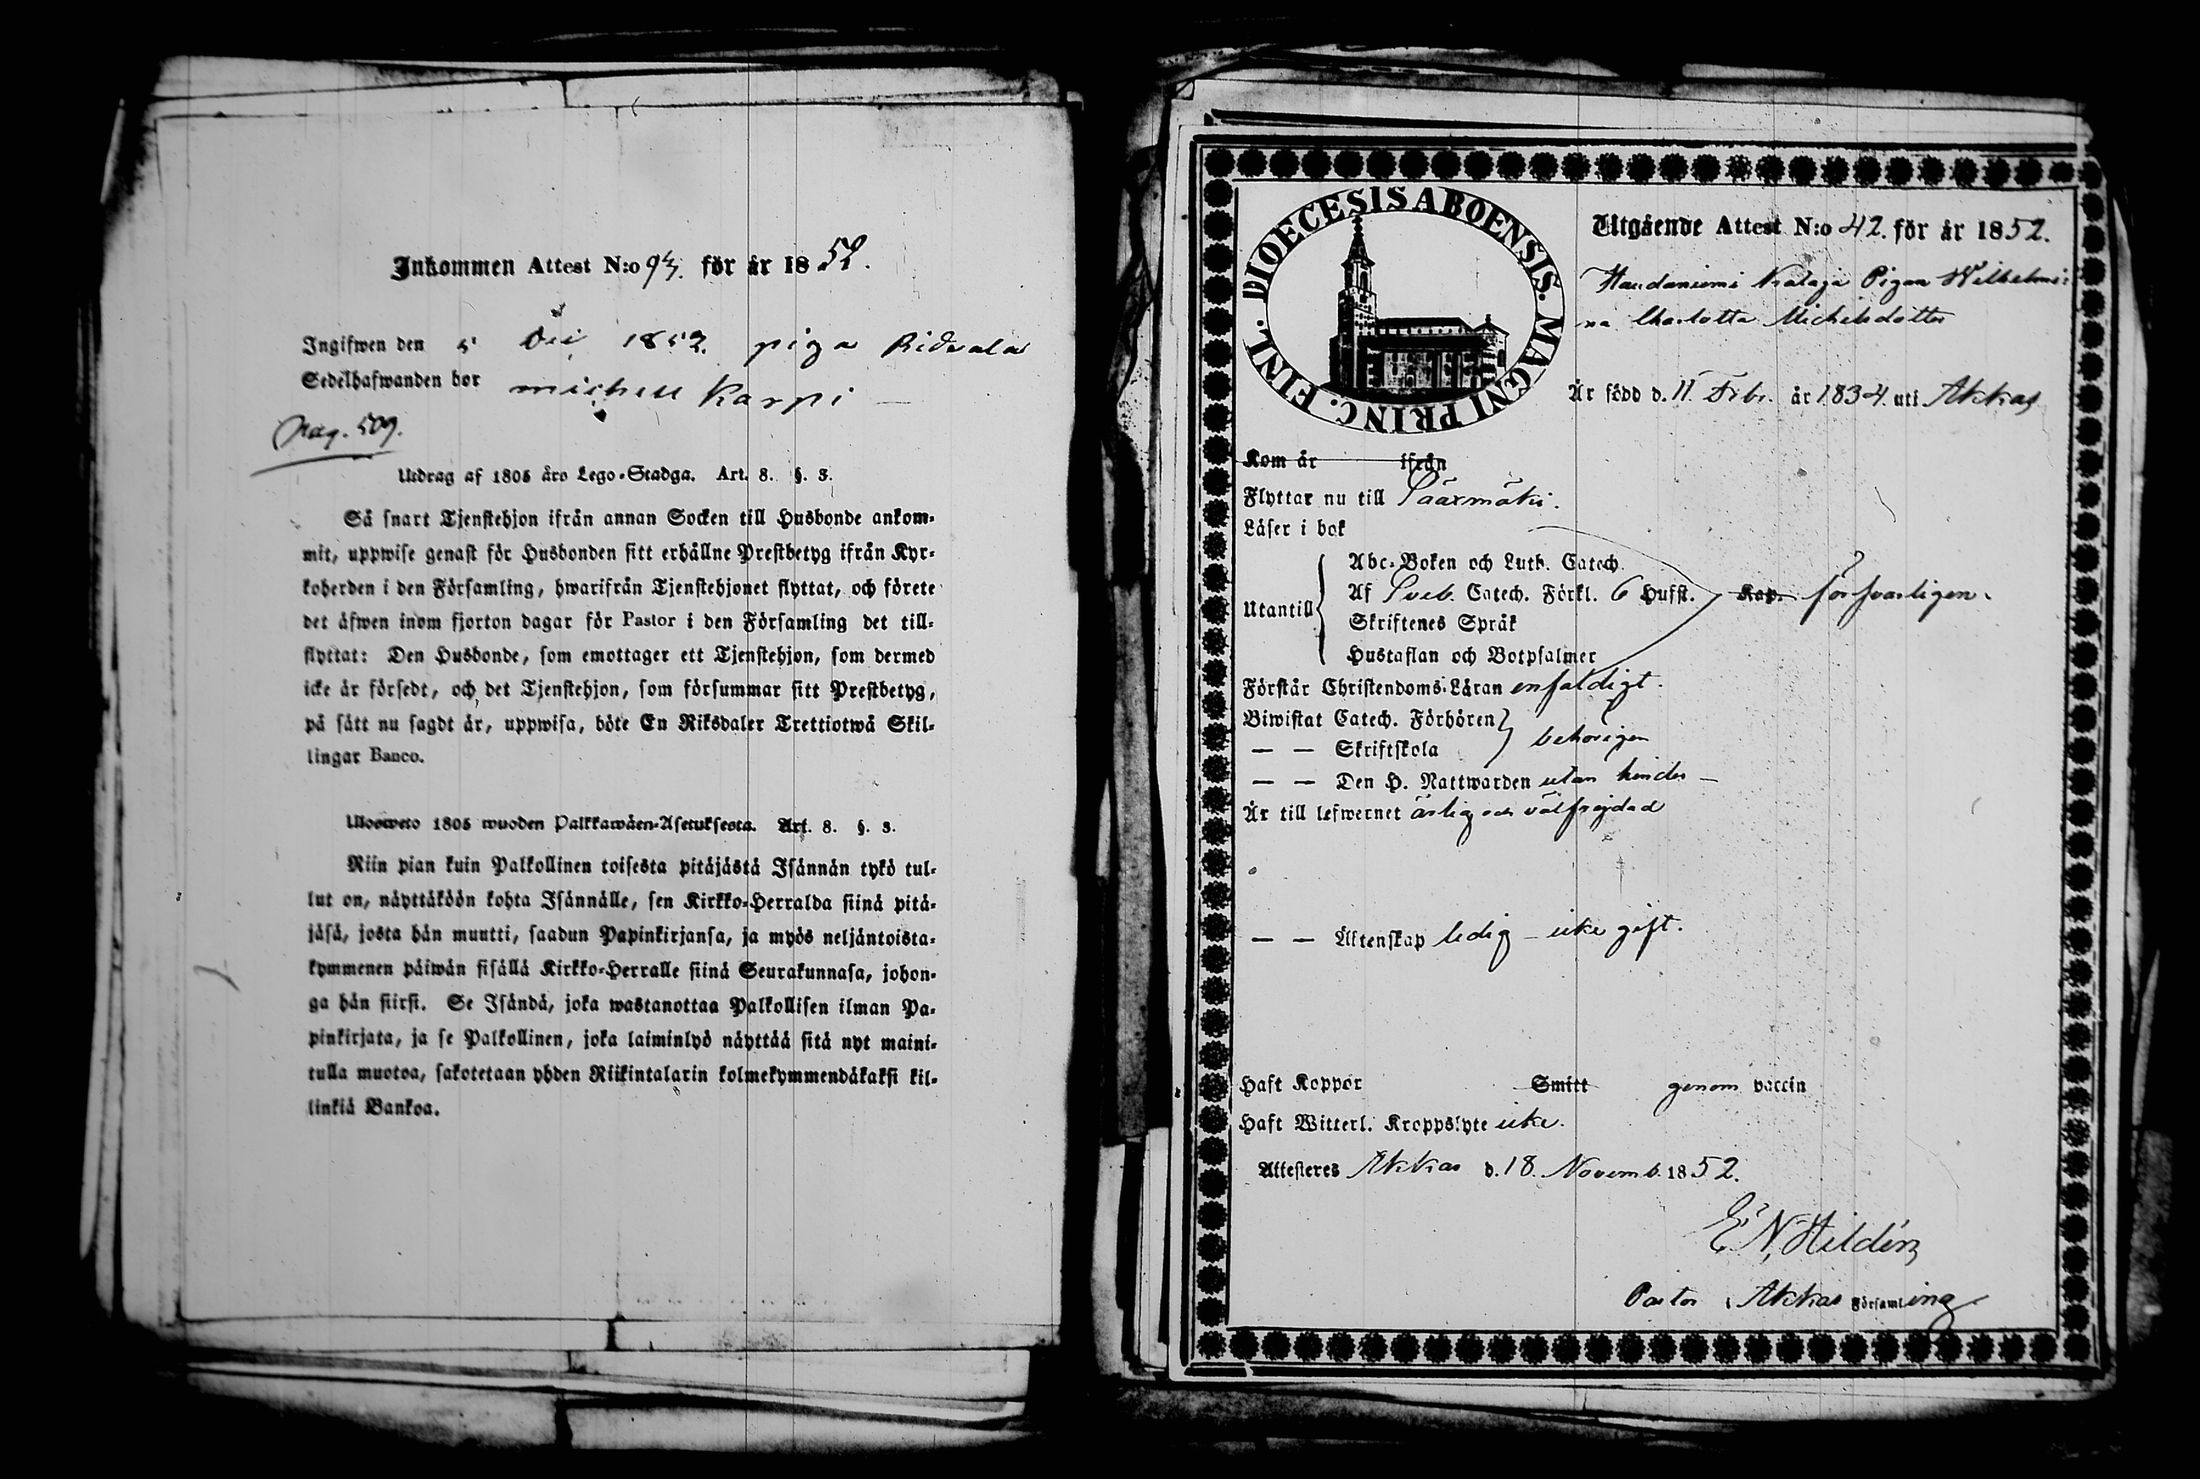 Inkommen Attest N:o 94. för år 1852.
Ingifwen den 5 Dec 1852. piga Ridvala
Sedelhafwanden bor michell Karpi
Pag. 509.
Utdrag af 1805 års Lego-Stadga. Art. 8. §. 3.
Så snart Tjenstehjon ifrån annan Socken till Husbonde ankom-
mit, uppwise genast för Husbonden sitt erhållne Prestbetyg ifrån Kyr-
koherden i den Församling, hwarifrån Tjenstehjonet flyttat, och förete
det äfwen inom fjorton dagar för Pastor i den Församling det till-
flyttat: Den Husbonde, som emottager ett Tjenstehjon, som dermed
icke är försedt, och det Tjenstehjon, som försummar sitt Prestbetyg,
på sätt nu sagdt är, uppwisa, böte En Riksdaler Trettiotwå Skil-
lingar Banco.
Ulosweto 1805 wuoden Palkkawäen-Asetuksesta. Art. 8. §. 3.
Niin pian kuin Palkollinen toisesta pitäjästä Isännän tykö tul-
lut on, näyttäköön kohta Isännälle, sen Kirkko-Herralda siinä pitä-
jäsä, josta hän muutti, saadun Papinkirjansa, ja myös neljäntoista-
kymmenen päiwän sisällä Kirkko-Herralle siinä Seurakunnasa, johon-
ga hän siirsi. Se Isändä, joka wastanottaa Palkollisen ilman Pa-
pinkirjata, ja se Palkollinen, joka laiminlyö näyttää sitä nyt maini-
tulla muotoa, sakotetaan yhden Riikintalarin kolmekymmendäkaksi kil-
linkiä Bankoa.
DIOECESIS ABOENSIS. MAGNI PRINC. FINL.
Utgående Attest N:o 42. för år 1852.
Haudaniemi Knalaja Pigan Wilhelmi-
na Charlotta Michelsdotter
Är född d. 11 Febr. år 1834 uti Akkas
Kom år ifrån
Flyttar nu till Sääxmäki.
Läser i bok
Utantill
Abc-Boken och Luth. Catech.
Af Sveb. Catech. Förkl. 6 Hufst. Kap. försvarligen.
Skriftenes Språk
Hustaflan och Botpsalmer
Förstår Christendoms-Läran enfaldigt.
Biwistat Catech. Förhören
— — Skriftskola behörigen
— — Den H. Nattwarden utan hinder —
Är till lefwernet ärlig och välfrejdad
— — Äktenskap ledig — icke gift.
Haft Koppor Smitt genom vaccin
Haft Witterl. Kroppslyte icke.
Attesteres Akkas d. 18. Novemb. 1852.
E. N. Hildén
Pastor i Akkas Församling